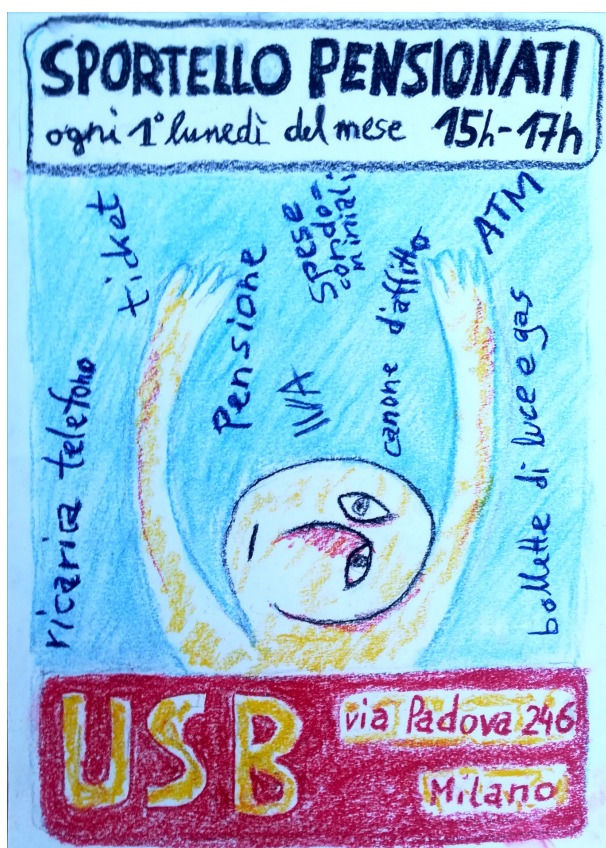 SPORTELLO PENSIONATI
ogni 1° lunedì del mese 15h-17h
ricarica telefono
ticket
Pensione
IVA
Spese
condo-
miniali
canone d'affitto
ATM
bollette di luce e gas
USB
via Padova 246
Milano